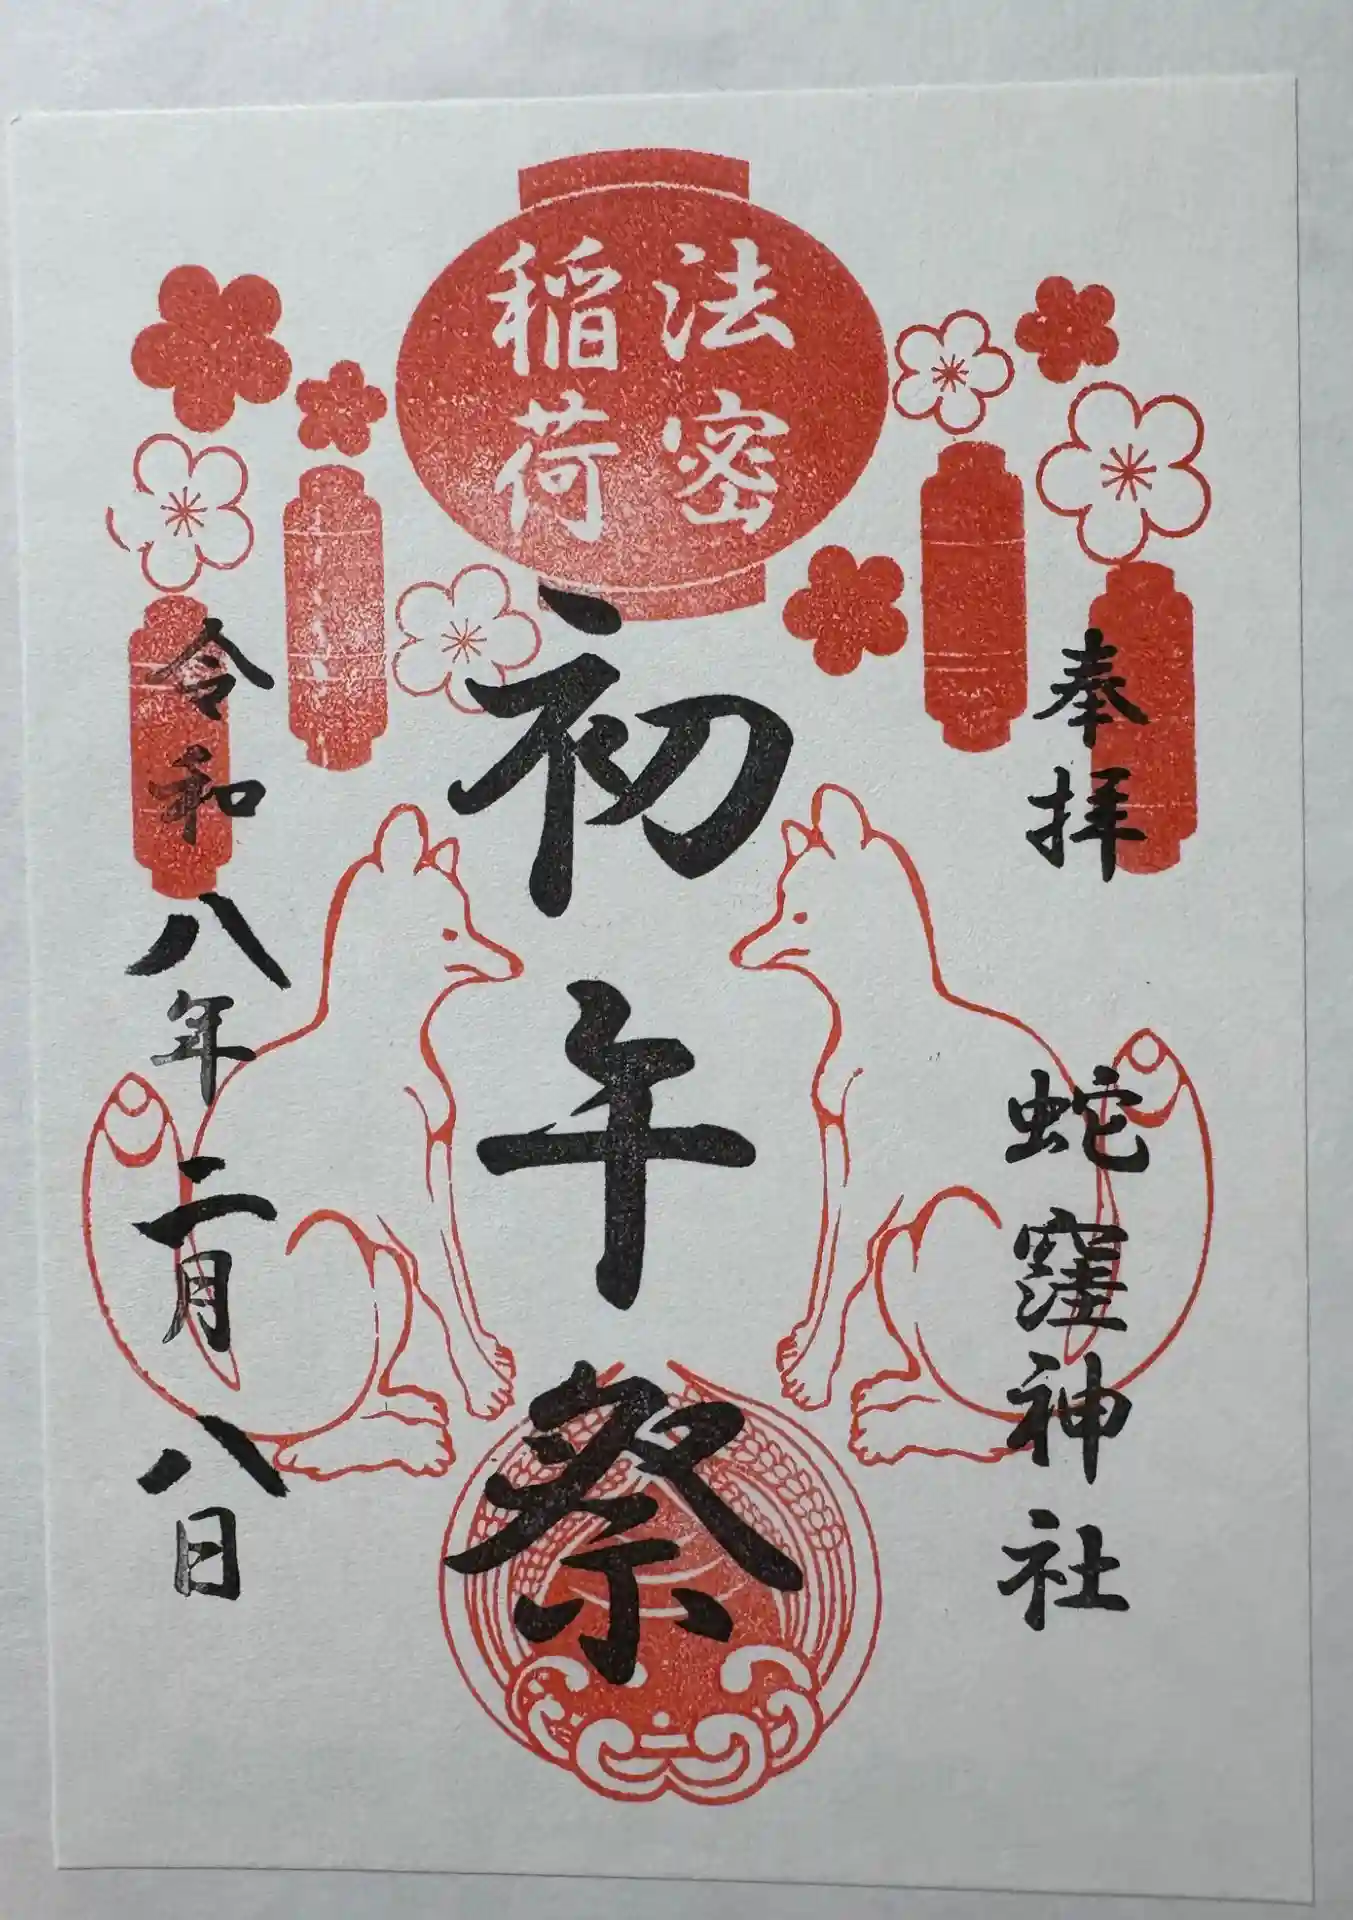 奉拝
蛇窪神社
法密
稲荷
初午祭
令和八年二月八日